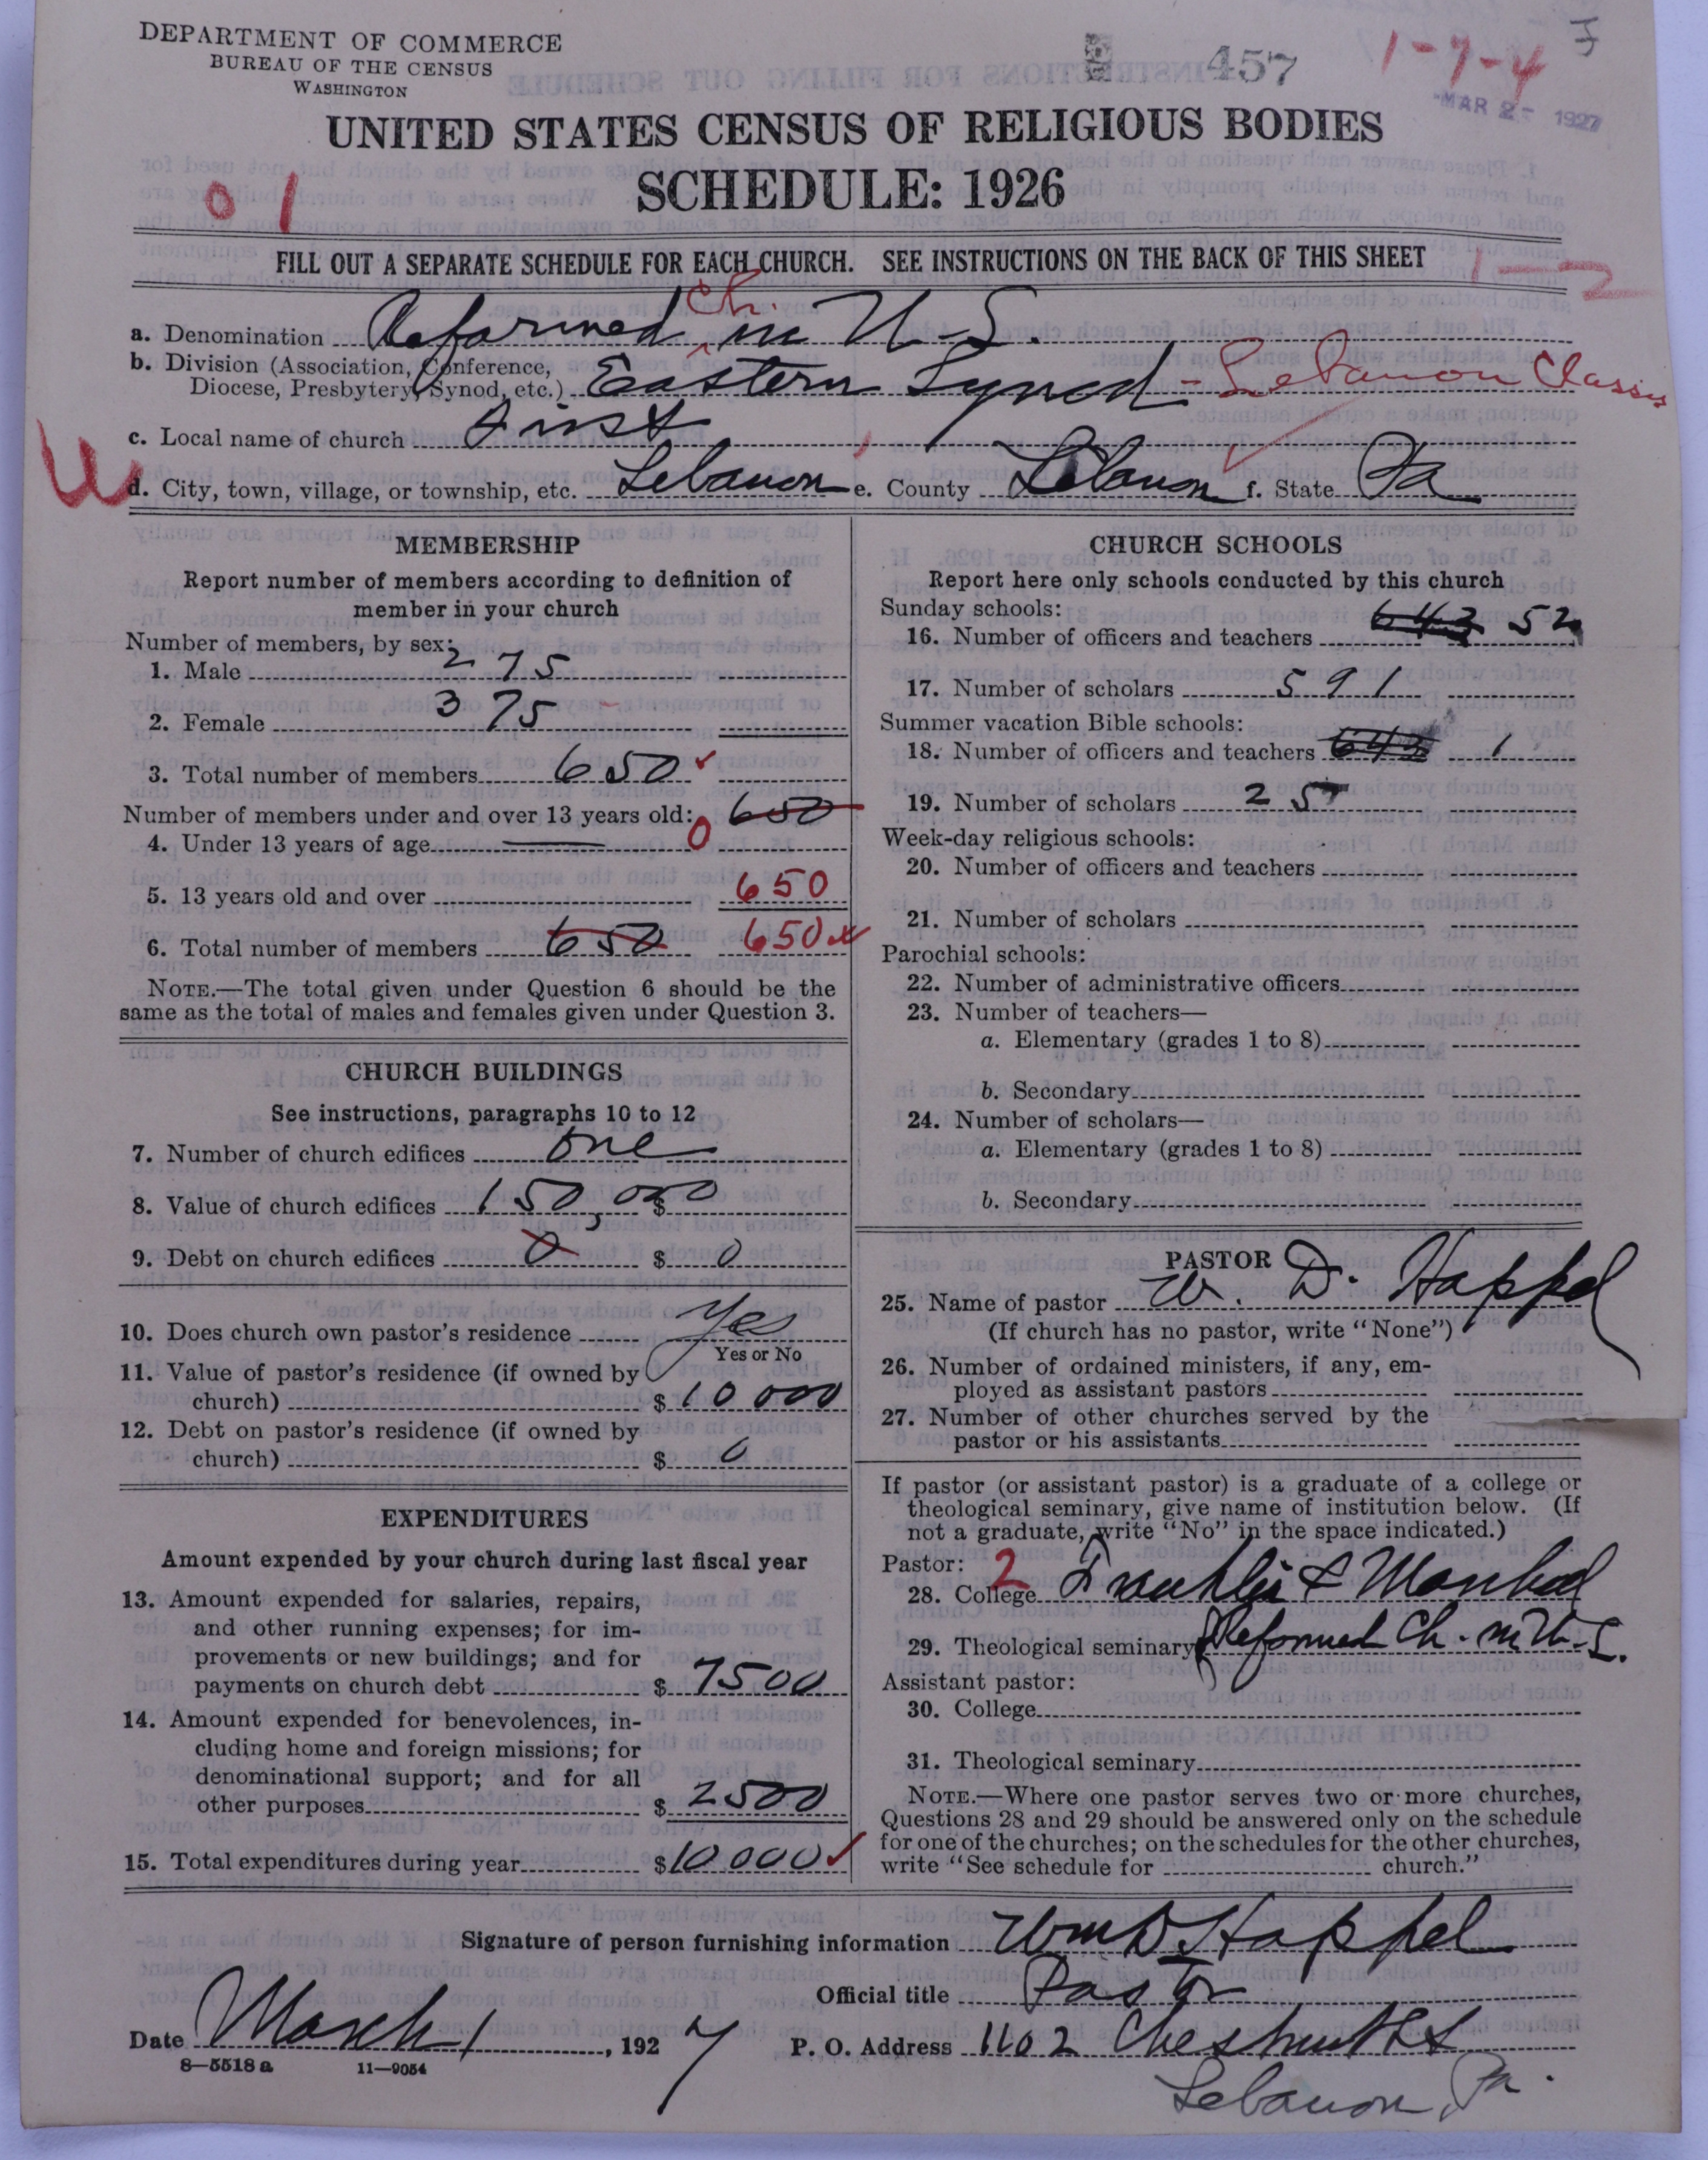 DEPARTMENT OF COMMERCE
BUREAU OF THE CENSUS
WASHINGTON
457
1-7-4
MAR 2- 1927
UNITED STATES CENSUS OF RELIGIOUS BODIES
SCHEDULE: 1926
0 1
FILL OUT A SEPARATE SCHEDULE FOR EACH CHURCH. SEE INSTRUCTIONS ON THE BACK OF THIS SHEET
1-2
a. Denomination Reformed Ch. in U. S.
b. Division (Association, Conference, Diocese, Presbytery, Synod, etc.) Eastern Synod - Lebanon Classis
c. Local name of church First
d. City, town, village, or township, etc. Lebanon e. County Lebanon f. State Pa
MEMBERSHIP
Report number of members according to definition of
member in your church
Number of members, by sex:
1. Male 275
2. Female 375
3. Total number of members 650
Number of members under and over 13 years old: 650
4. Under 13 years of age 0
5. 13 years old and over 650
6. Total number of members 650 650
NOTE.—The total given under Question 6 should be the
same as the total of males and females given under Question 3.
CHURCH BUILDINGS
See instructions, paragraphs 10 to 12
7. Number of church edifices one
8. Value of church edifices 150,000 $
9. Debt on church edifices 0 $ 0
10. Does church own pastor's residence Yes
Yes or No
11. Value of pastor's residence (if owned by
church) $ 10 000
12. Debt on pastor's residence (if owned by
church) $ 0
EXPENDITURES
Amount expended by your church during last fiscal year
13. Amount expended for salaries, repairs,
and other running expenses; for im-
provements or new buildings; and for
payments on church debt $ 7500
14. Amount expended for benevolences, in-
cluding home and foreign missions; for
denominational support; and for all
other purposes $ 2500
15. Total expenditures during year $ 10 000
CHURCH SCHOOLS
Report here only schools conducted by this church
Sunday schools:
16. Number of officers and teachers 643 52
17. Number of scholars 591
Summer vacation Bible schools:
18. Number of officers and teachers 643 1
19. Number of scholars 25
Week-day religious schools:
20. Number of officers and teachers
21. Number of scholars
Parochial schools:
22. Number of administrative officers
23. Number of teachers—
a. Elementary (grades 1 to 8)
b. Secondary
24. Number of scholars—
a. Elementary (grades 1 to 8)
b. Secondary
PASTOR
25. Name of pastor W. D. Happel
(If church has no pastor, write "None")
26. Number of ordained ministers, if any, em-
ployed as assistant pastors
27. Number of other churches served by the
pastor or his assistants
If pastor (or assistant pastor) is a graduate of a college or
theological seminary, give name of institution below. (If
not a graduate, write "No" in the space indicated.)
Pastor: 2
28. College Franklin & Marshall
29. Theological seminary Reformed Ch. in U. S.
Assistant pastor:
30. College
31. Theological seminary
NOTE.—Where one pastor serves two or more churches,
Questions 28 and 29 should be answered only on the schedule
for one of the churches; on the schedules for the other churches,
write "See schedule for church."
Signature of person furnishing information Wm D Happel
Official title Pastor
Date March 1, 1927 P. O. Address 1102 Chestnut St
8—5518 a 11—9054
Lebanon, Pa.